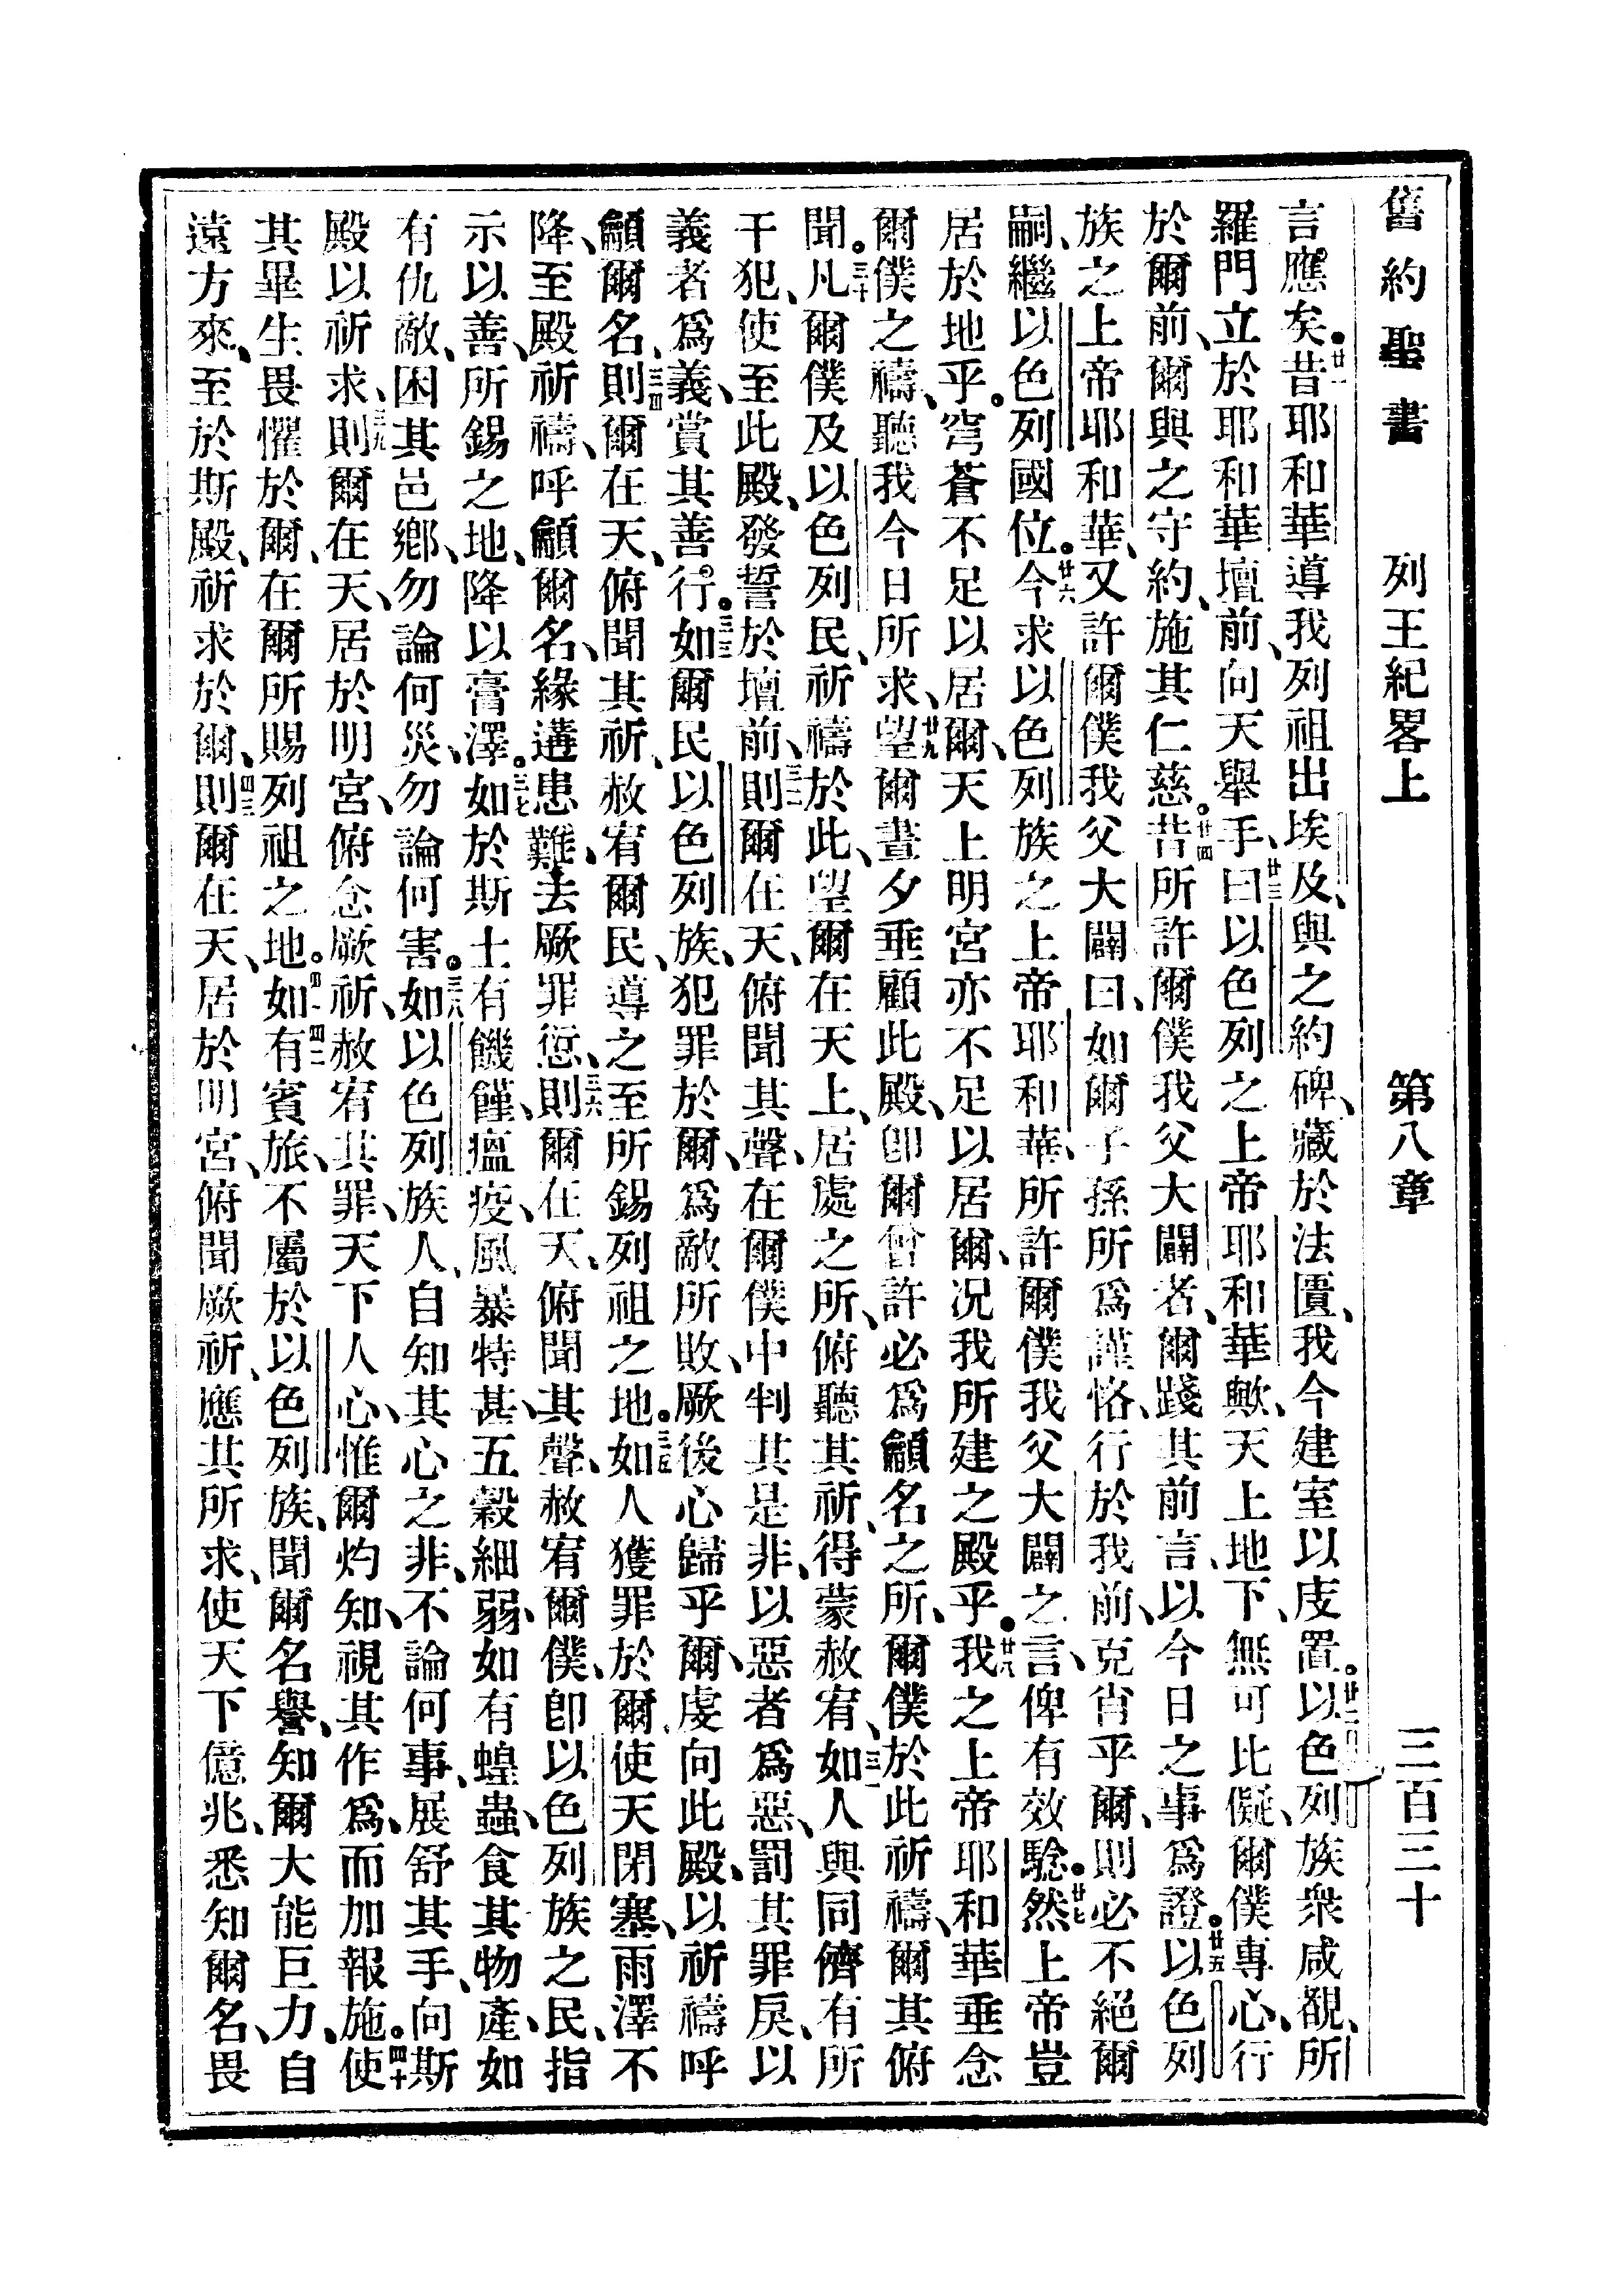 舊約聖書 列王紀畧上 第八章 三百三十
言應矣。廿一昔耶和華導我列祖出埃及、與之約碑、藏於法匱、我今建室以庋置。廿二以色列族衆咸覩、所
羅門立於耶和華壇前、向天舉手、廿三曰以色列之上帝耶和華歟、天上地下、無可比儗、爾僕專心、行
於爾前、爾與之守約、施其仁慈。廿四昔所許爾僕我父大闢者、爾踐其前言、以今日之事爲證。廿五以色列
族之上帝耶和華、又許爾僕我父大闢曰、如爾子孫所爲謹恪、行於我前、克肖乎爾、則必不絕爾
嗣、繼以色列國位。廿六今求以色列族之上帝耶和華、所許爾僕我父大闢之言、俾有效騐。廿七然上帝豈
居於地乎。穹蒼不足以居爾、天上明宮亦不足以居爾、况我所建之殿乎。廿八我之上帝耶和華垂念
爾僕之禱、聽我今日所求、廿九望爾晝夕垂顧此殿、卽爾曾許必爲龥名之所、爾僕於此祈禱、爾其俯
聞。三十凡爾僕及以色列民、祈禱於此、望爾在天上、居處之所、俯聽其祈、得蒙赦宥、三一如人與同儕有所
干犯、使至此殿、發誓於壇前、三二則爾在天、俯聞其聲、在爾僕中判其是非、以惡者爲惡、罰其罪戾、以
義者爲義、賞其善行。三三如爾民以色列族、犯罪於爾、爲敵所敗、厥後心歸乎爾、虔向此殿、以祈禱呼
龥爾名、三四則爾在天、俯聞其祈、赦宥爾民、導之至所錫列祖之地。三五如人獲罪於爾、使天閉塞、雨澤不
降、至殿祈禱、呼龥爾名、緣遘患難、去厥罪愆、三六則爾在天、俯聞其聲、赦宥爾僕、卽以色列族之民、指
示以善、所錫之地、降以膏澤。三七如於斯土有饑饉、瘟疫、風暴特甚、五穀細弱、如有蝗蟲、食其物產、如
有仇敵、困其邑鄉、勿論何災、勿論何害。三八如以色列族人、自知其心之非、不論何事、展舒其手、向斯
殿以祈求、三九則爾在天、居於明宮、俯念厥祈、赦宥其罪、天下人心、惟爾灼知、視其作爲、而加報施。四十使
其畢生畏懼於爾、在爾所賜列祖之地。四一四二如有賓旅、不屬於以色列族、聞爾名譽、知爾大能巨力、自
遠方來、至於斯殿、祈求於爾、四三則爾在天、居於明宮、俯聞厥祈、應其所求、使天下億兆、悉知爾名、畏